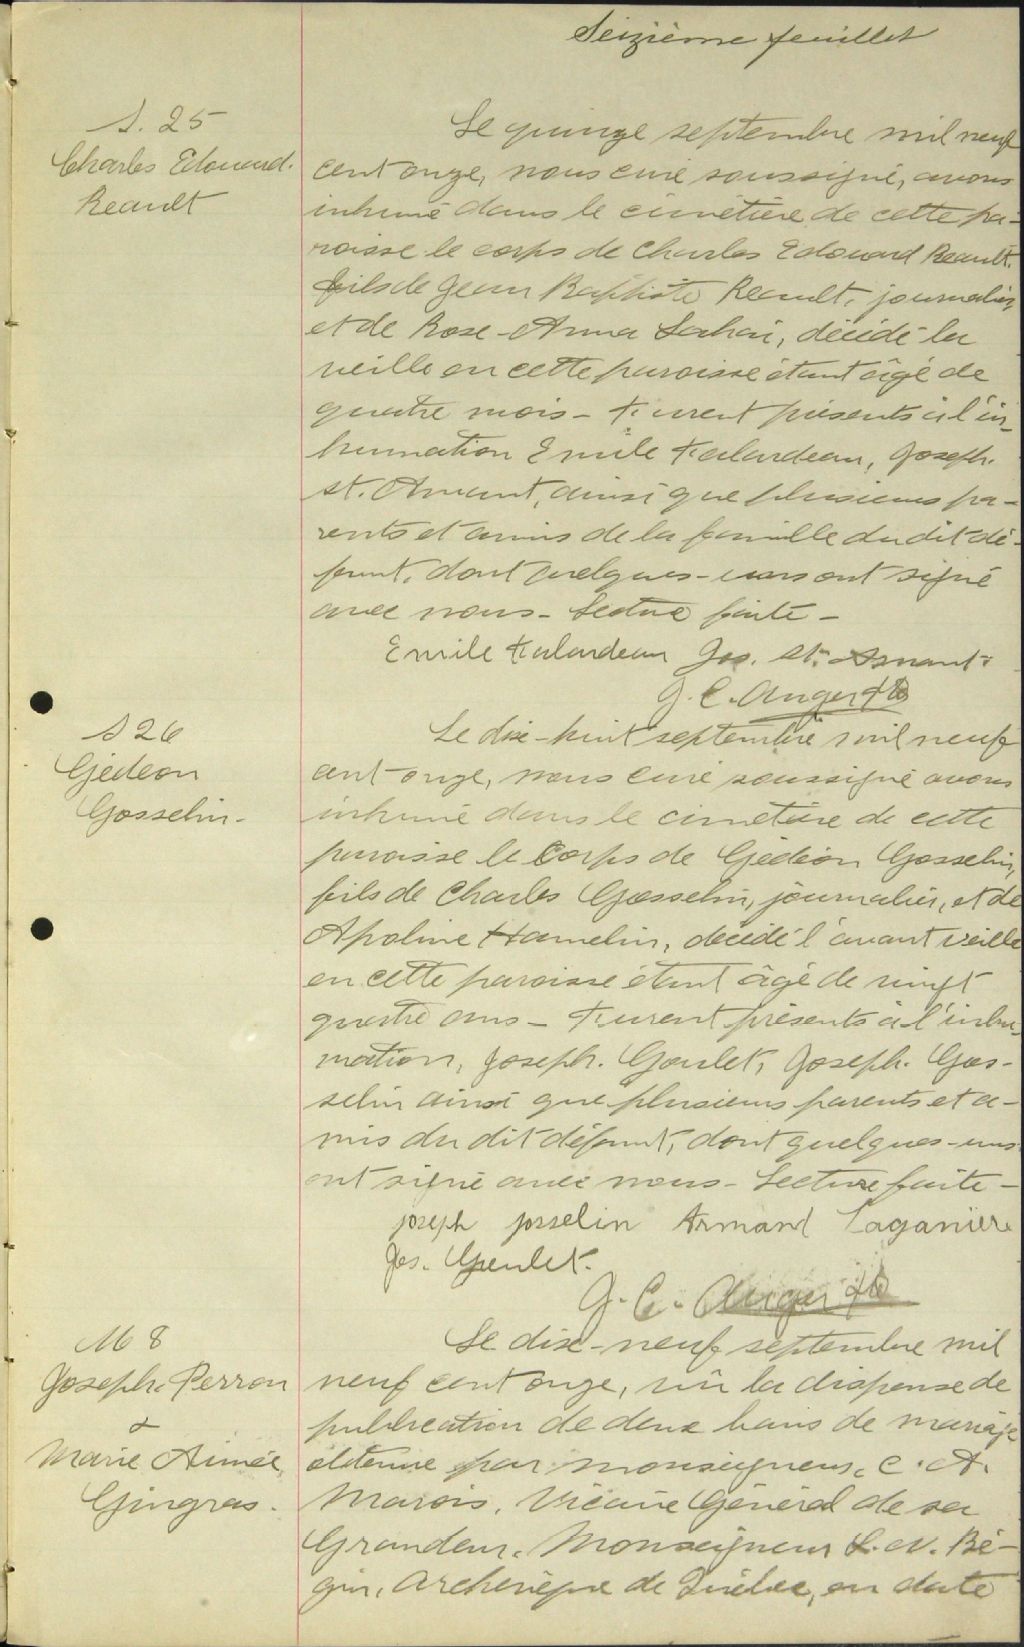 Seizième feuillet
S. 25
Charles Edouard.
Reault
Le quinze septembre mil neuf
cent onze, nous curé soussigné, avons
inhumé dans le cimetière de cette pa-
roisse le corps de Charles Edouard Reault.
fils de Jean Baptiste Reault, journalier,
et de Rose-Anna Lahai, décédé la
veille en cette paroisse étant âgé de
quatre mois - Furent présents à l'in-
humation Emile Falardeau, Joseph.
St. Amant, ainsi que plusieurs pa-
rents et amis de la famille du dit dé-
funt, dont quelques-uns ont signé
avec nous - Lecture faite -
Emile Falardeau Jos. St. Amant
J. C. Auger ptre
S 26
Gédéon
Gosselin -
Le dix-huit septembre mil neuf
cent onze, nous curé soussigné avons
inhumé dans le cimetière de cette
paroisse le corps de Gédéon Gosselin,
fils de Charles Gosselin, journalier, et de
Apoline Hamelin, décédé l'avant veille
en cette paroisse étant âgé de vingt
quatre ans - Furent présents à l'inhu-
mation, Joseph. Goulet, Joseph. Gos-
selin ainsi que plusieurs parents et a-
mis du dit défunt, dont quelques-uns
ont signé avec nous - Lecture faite -
joseph josselin Armand Laganière
Jos. Goulet.
J. C. Auger ptre
M 8
Joseph. Perron
&
Marie Aimée
Gingras.
Le dix-neuf septembre mil
neuf cent onze, vû la dispense de
publication de deux bans de mariage
obtenue par monseigneur C. A.
Marois, Vicaire Général de sa
Grandeur, Monseigneur L. N. Bé-
gin, archevêque de Québec, en date